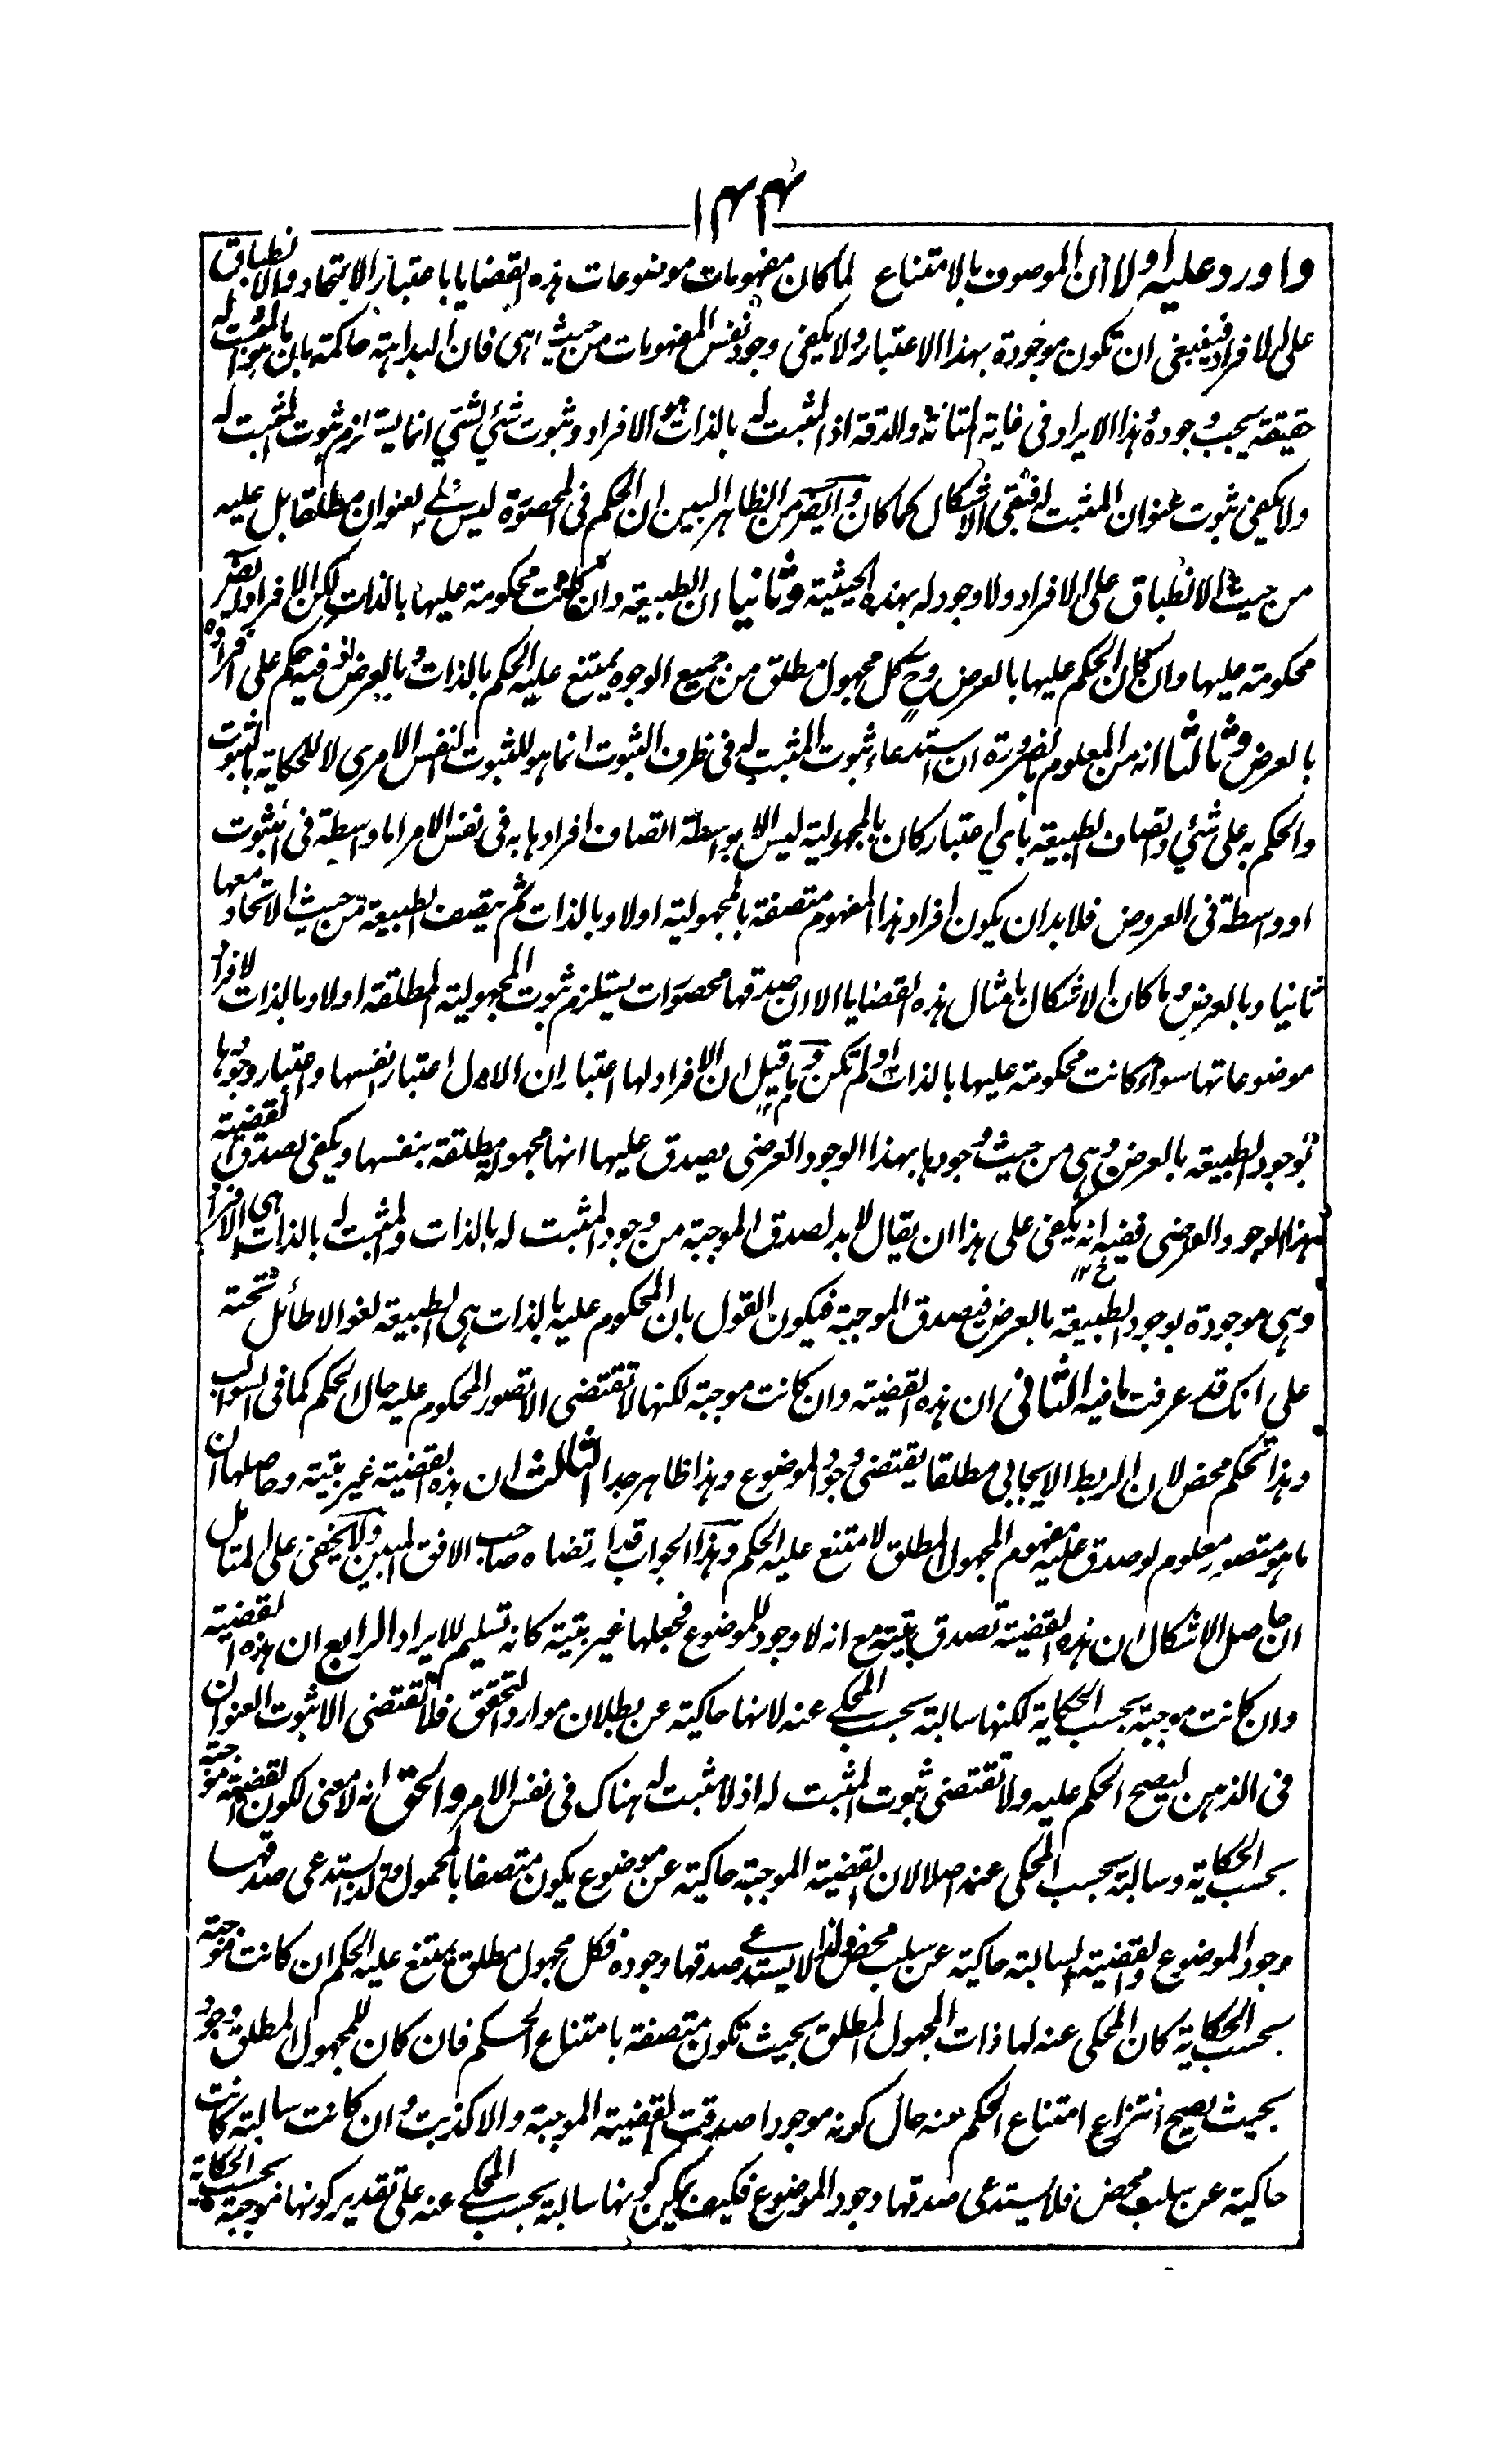 ١٤٤
واورد عليه اولا ان الموصوف بالامتناع لما كان مفهومات موضوعات هذه القضايا باعتبار الاتحاد والانطباق
على الافراد فينبغي ان تكون موجودة بهذا الاعتبار ولا يكفي وجود نفس المفهومات من حيث هي فان البداهة حاكمة بان المثبت له
حقيقة يجب وجوده وهذا الايراد في غاية المتانة والدقة اذ المثبت له بالذات هو الافراد وثبوت شئ لشئ انما يستلزم ثبوت المثبت له
ولا يكفي ثبوت عنوان المثبت له فبقي الاشكال كما كان وايضا من الظاهر البين ان الحكم في المحصورة ليس على العنوان مطلقا بل عليه
من حيث الانطباق على الافراد ولا وجود له بهذه الحيثية وثانيا ان الطبيعة وان كانت محكومة عليها بالذات لكن الافراد ايضا
محكومة عليها وان كان الحكم عليها بالعرض وح كل مجهول مطلق من جميع الوجوه يمتنع عليه الحكم بالذات وبالعرض اذ فيه حكم على افراده
بالعرض وثالثا انه من المعلوم بالضرورة ان استدعاء ثبوت المثبت له في ظرف الثبوت انما هو للثبوت النفس الامري لا للحكاية بالثبوت
والحكم به على شئ واتصاف الطبيعة باي اعتبار كان بالمجهولية ليس الا بواسطة اتصاف افرادها به في نفس الامر اما واسطة في الثبوت
او واسطة في العروض فلا بد ان يكون افراد هذا المفهوم متصفة بالمجهولية اولا وبالذات ثم يتصف الطبيعة من حيث الاتحاد معها
ثانيا وبالعرض وما كان الاشكال بامثال هذه القضايا الا ان صدقها محصورات يستلزم ثبوت المجهولية المطلقة اولا وبالذات لافراد
موضوعاتها سواء كانت محكومة عليها بالذات او لم تكن وما قيل ان الافراد لها اعتباران الاول اعتبار انفسها واعتبار وجودها
بوجود الطبيعة بالعرض وهي من حيث وجودها بهذا الوجود العرضي يصدق عليها انها مجهولة مطلقة بنفسها ويكفي لصدق القضية
بهذا الوجود العرضي ففيه انه يكفي على هذا ان يقال لا بد لصدق الموجبة من وجود المثبت له بالذات والمثبت له بالذات هي الافراد
وهي موجودة بوجود الطبيعة بالعرض فيصدق الموجبة فيكون القول بان المحكوم عليه بالذات هي الطبيعة لغوا لا طائل تحته
على انك قد عرفت ما فيه الثاني ان هذه القضية وان كانت موجبة لكنها لا تقتضي الا تصور المحكوم عليه حال الحكم كما في السوالب
وهذا تحكم محض لان الربط الايجابي مطلقا يقتضي وجود الموضوع وهذا ظاهر جدا الثالث ان هذه القضية غير بتية وحاصلها ان
ما هو متصور معلوم لو صدق عليه مفهوم المجهول المطلق لامتنع عليه الحكم وهذا الجواب قد ارتضاه صاحب الافق المبين ولا يخفى على المتامل
ان حاصل الاشكال ان هذه القضية تصدق بتية مع انه لا وجود للموضوع فجعلها غير بتية كانه تسليم للايراد الرابع ان هذه القضية
وان كانت موجبة بحسب الحكاية لكنها سالبة بحسب المحكي عنه لانها حاكية عن بطلان موارد التحقق فلا تقتضي الا ثبوت العنوان
في الذهن ليصح الحكم عليه ولا تقتضي ثبوت المثبت له اذ لا مثبت له هناك في نفس الامر والحق انه لا معنى لكون القضية موجبة
بحسب الحكاية وسالبة بحسب المحكي عنه اصلا لان القضية الموجبة حاكية عن موضوع يكون متصفا بالمحمول ولذا يستدعي صدقها
وجود الموضوع والقضية السالبة حاكية عن سلب محض ولذا لا يستدعي صدقها وجوده فكل مجهول مطلق يمتنع عليه الحكم ان كانت موجبة
بحسب الحكاية كان المحكي عنه لها ذات المجهول المطلق بحيث تكون متصفة بامتناع الحكم فان كان للمجهول المطلق وجود
بحيث يصح انتزاع امتناع الحكم عنه حال كونه موجودا صدقت القضية الموجبة والا كذبت وان كانت سالبة كانت
حاكية عن سلب محض فلا يستدعي صدقها وجود الموضوع فكيف يمكن كونها سالبة بحسب المحكي عنه على تقدير كونها موجبة بحسب الحكاية